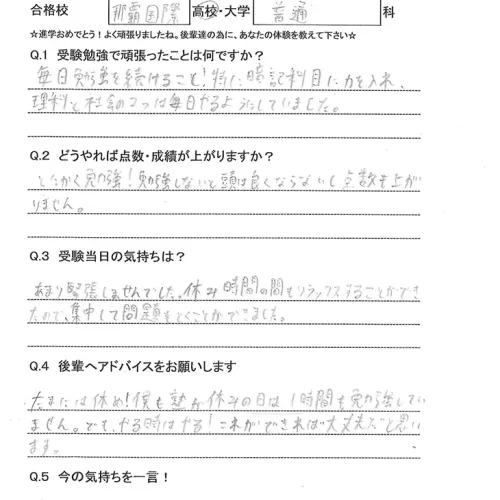 合格校 那覇国際 高校・大学 普通 科
☆進学おめでとう!よく頑張りましたね。後輩達の為に、あなたの体験を教えて下さい☆
Q.1 受験勉強で頑張ったことは何ですか?
毎日勉強を続けること!特に暗記科目に力を入れ、
理科と社会の2つは毎日やるようにしていました。
Q.2 どうやれば点数・成績が上がりますか?
とにかく勉強!勉強しないと頭は良くならないし点数も上が
りません。
Q.3 受験当日の気持ちは?
あまり緊張しませんでした。休み時間の間もリラックスすることができ
たので、集中して問題をとくことができました。
Q.4 後輩へアドバイスをお願いします
たまには休め!僕も塾が休みの日は1時間も勉強してい
ません。でも、やる時はやる!これができれば大丈夫だと思い
ます。
Q.5 今の気持ちを一言!